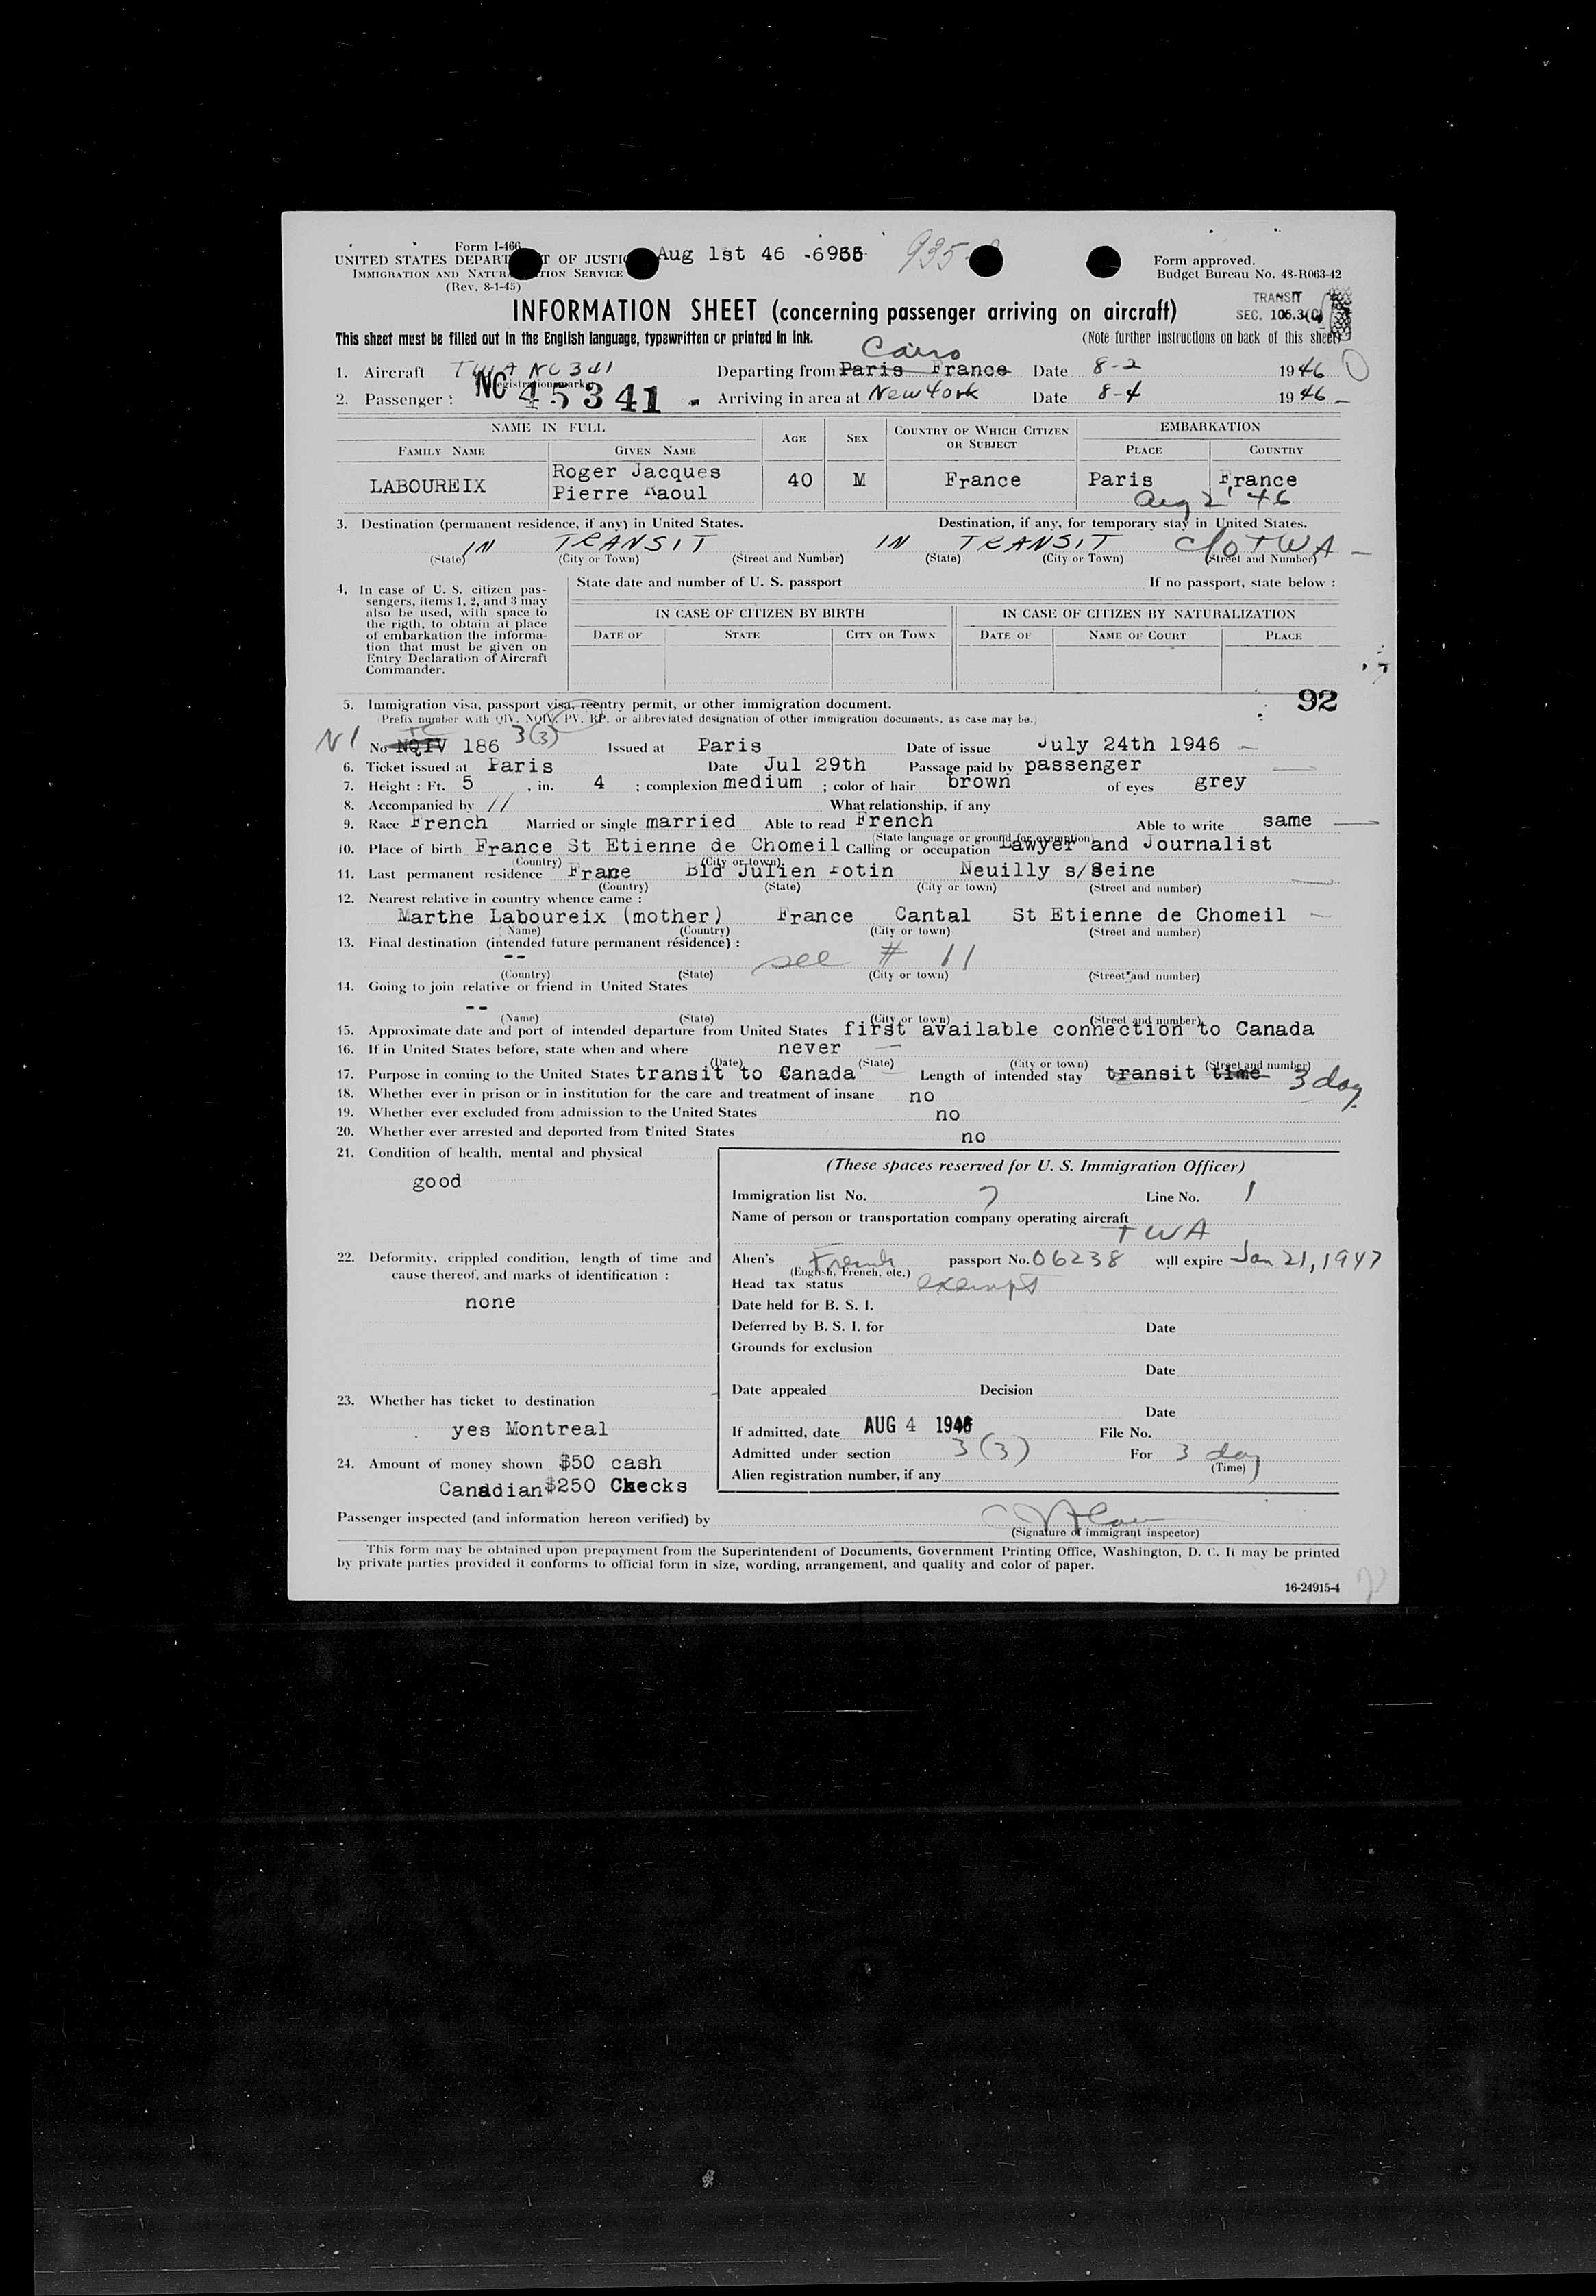 Form I-466
Aug 1st 46 -6935 935
UNITED STATES DEPART T OF JUSTIC
Form approved.
IMMIGRATION AND NATURA TION SERVICE
Budget Bureau No. 43-R063-42
(Rev. 8-1-45)
TRANSIT
INFORMATION SHEET (concerning passenger arriving on aircraft)
SEC. 106.3(C)
This sheet must be filled out in the English language, typewritten or printed in ink.
(Note further instructions on back of this sheet)
Cairo
1. Aircraft TWA NC 341 Departing from Paris France Date 8-2 1946
NC 45341
2. Passenger : Arriving in area at New York Date 8-4 1946
NAME IN FULL AGE SEX COUNTRY OF WHICH CITIZEN OR SUBJECT EMBARKATION
FAMILY NAME GIVEN NAME PLACE COUNTRY
LABOUREIX Roger Jacques Pierre Raoul 40 M France Paris France
Aug 2' 46
3. Destination (permanent residence, if any) in United States. Destination, if any, for temporary stay in United States.
IN TRANSIT IN TRANSIT C/O TWA
(State) (City or Town) (Street and Number) (State) (City or Town) (Street and Number)
4. In case of U. S. citizen pas-
sengers, items 1, 2, and 3 may
also be used, with space to
the rigth, to obtain at place
of embarkation the informa-
tion that must be given on
Entry Declaration of Aircraft
Commander.
State date and number of U. S. passport If no passport, state below :
IN CASE OF CITIZEN BY BIRTH IN CASE OF CITIZEN BY NATURALIZATION
DATE OF STATE CITY OR TOWN DATE OF NAME OF COURT PLACE
92
5. Immigration visa, passport visa, reentry permit, or other immigration document.
(Prefix number with QIV, NQIV, PV, RP, or abbreviated designation of other immigration documents, as case may be.)
No NQIV 186 3(3) Issued at Paris Date of issue July 24th 1946
6. Ticket issued at Paris Date Jul 29th Passage paid by passenger
7. Height : Ft. 5 , in. 4 ; complexion medium ; color of hair brown of eyes grey
8. Accompanied by // What relationship, if any
9. Race French Married or single married Able to read French Able to write same
(State language or ground for exemption)
10. Place of birth France St Etienne de Chomeil Calling or occupation Lawyer and Journalist
(Country) (City or town)
11. Last permanent residence France Bld Julien Potin Neuilly s/Seine
(Country) (State) (City or town) (Street and number)
12. Nearest relative in country whence came :
Marthe Laboureix (mother) France Cantal St Etienne de Chomeil
(Name) (Country) (City or town) (Street and number)
13. Final destination (intended future permanent résidence) :
-- see # 11
(Country) (State) (City or town) (Street and number)
14. Going to join relative or friend in United States
--
(Name) (State) (City or town) (Street and number)
15. Approximate date and port of intended departure from United States first available connection to Canada
16. If in United States before, state when and where never
(Date) (State) (City or town) (Street and number)
17. Purpose in coming to the United States transit to Canada Length of intended stay transit time 3 day
18. Whether ever in prison or in institution for the care and treatment of insane no
19. Whether ever excluded from admission to the United States no
20. Whether ever arrested and deported from United States no
21. Condition of health, mental and physical
good
22. Deformity, crippled condition, length of time and
cause thereof, and marks of identification :
none
23. Whether has ticket to destination
yes Montreal
24. Amount of money shown $50 cash
Canadian $250 Checks
(These spaces reserved for U. S. Immigration Officer)
Immigration list No. 7 Line No. 1
Name of person or transportation company operating aircraft
TWA
Alien's French passport No. 06238 will expire Jan 21, 1947
(English, French, etc.)
Head tax status exempt
Date held for B. S. I.
Deferred by B. S. I. for Date
Grounds for exclusion
Date
Date appealed Decision
Date
If admitted, date AUG 4 1946 File No.
Admitted under section 3(3) For 3 day
(Time)
Alien registration number, if any
Passenger inspected (and information hereon verified) by
(Signature of immigrant inspector)
This form may be obtained upon prepayment from the Superintendent of Documents, Government Printing Office, Washington, D. C. It may be printed
by private parties provided it conforms to official form in size, wording, arrangement, and quality and color of paper.
16-24915-4